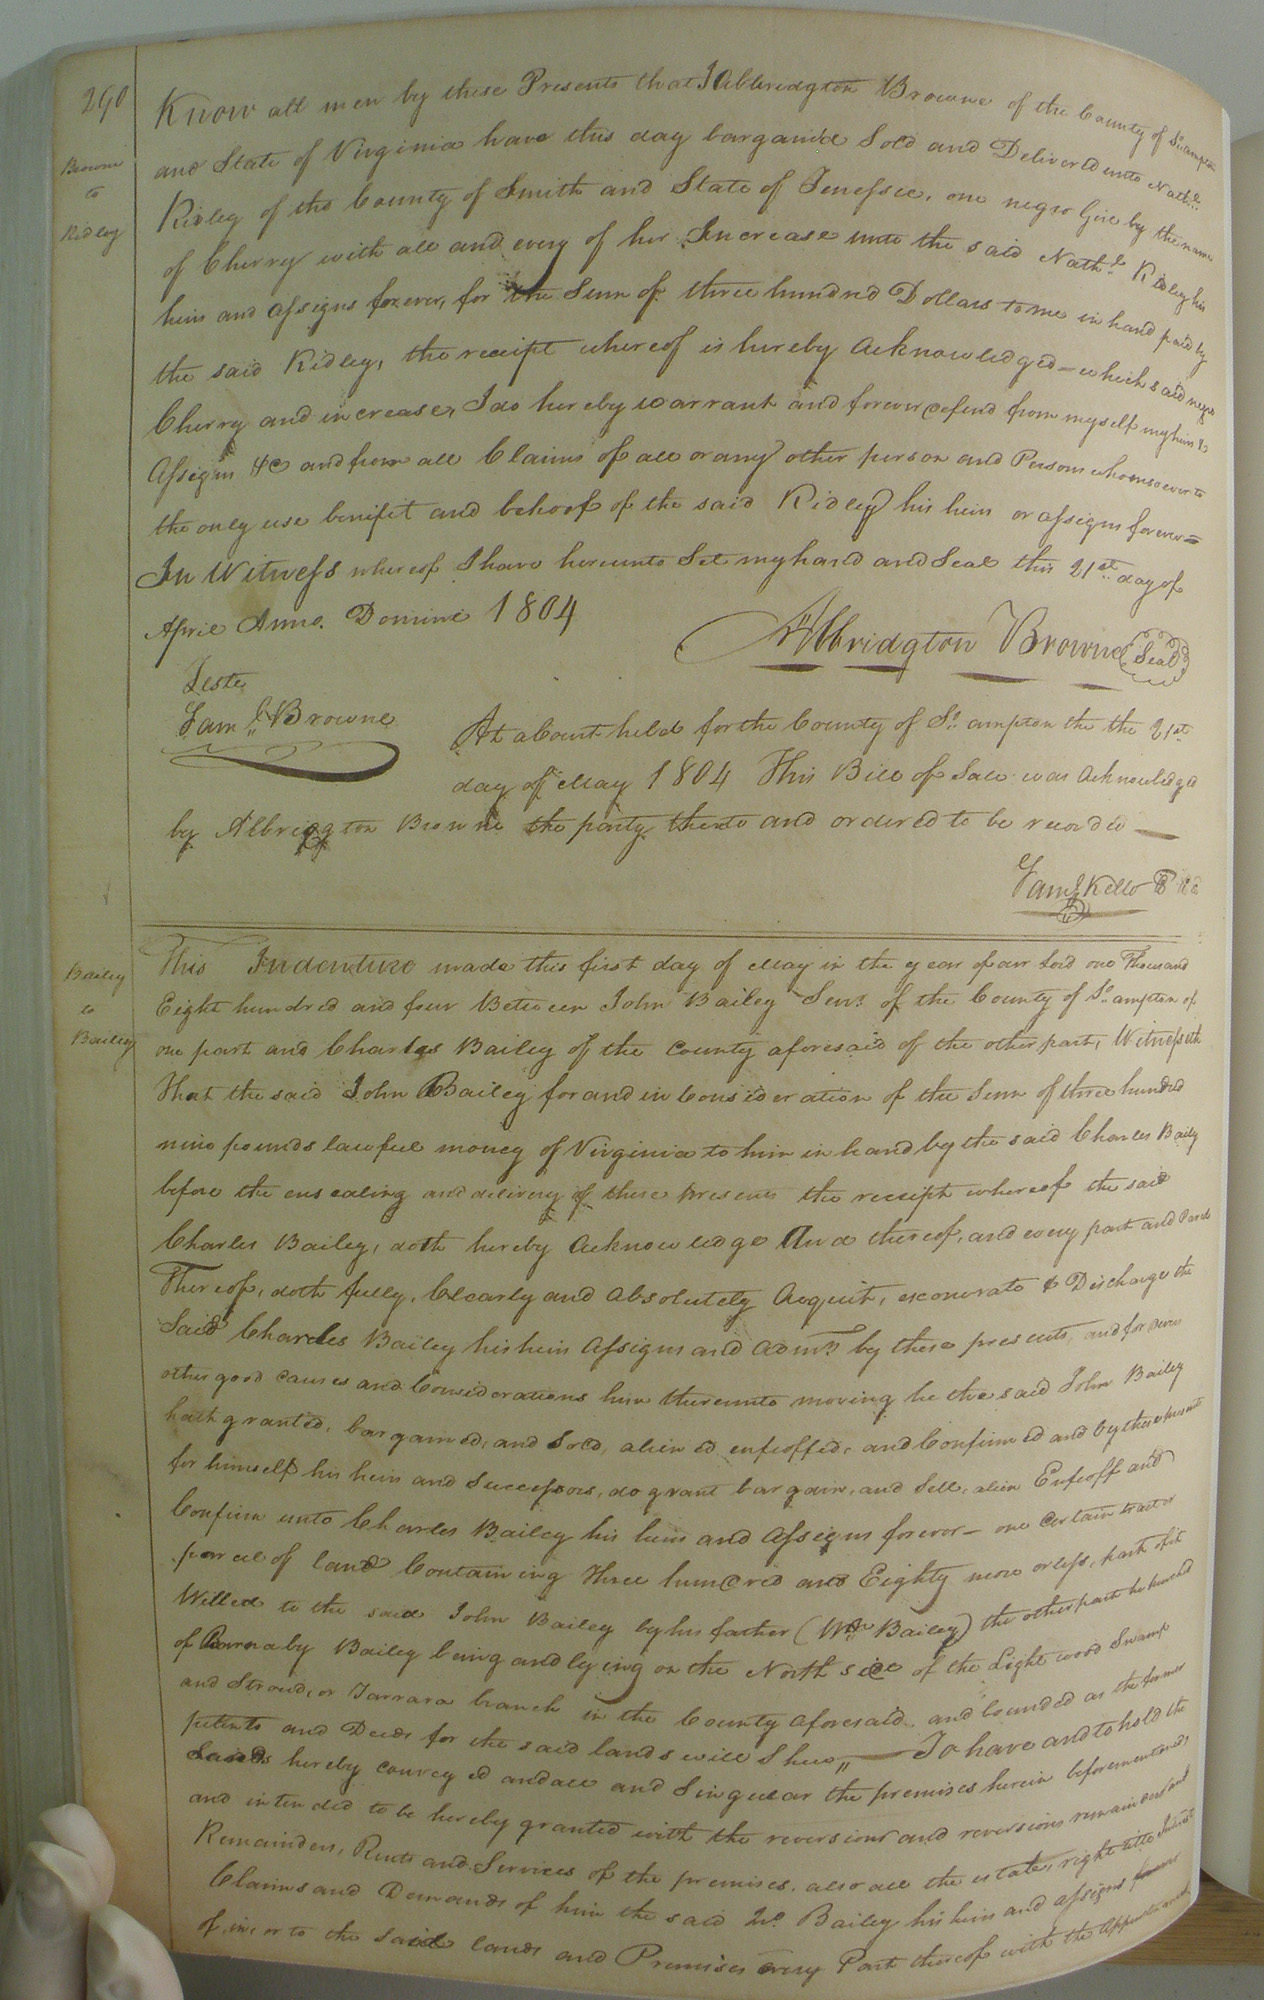 290
Browne
to
Ridley
Know all men by these Presents that I Albridgton Browne of the County of So.ampton
and State of Virginia have this day bargain'd Sold and Deliver'd unto Nathl.
Ridley of the County of Smith and State of Tenessee, one negro Girl by the name
of Cherry with all and every of her Increase unto the said Nathl. Ridley his
heirs and assigns forever, for the Sum of three hundred Dollars to me in hand paid by
the said Ridley, the receipt whereof is hereby Acknowledged - which said negro
Cherry and increase, I do hereby warrant and forever defend from myself my heirs &
Assigns &c and from all Claims of all or any other person and Persons whomsoever to
the only use benifit and behoof of the said Ridley his heirs or assigns forever -
In Witness whereof I have hereunto Set my hand and Seal this 21st. day of
April Anno. Domini 1804
Albridgton Browne Seal
Teste
Saml. Browne
At a Court held for the County of So. ampton the the 21st
day of May 1804 This Bill of Sale was Acknowledged
by Albridgton Browne the party thereto and ordered to be recorded -
Saml Kello
Bailey
to
Bailey
This Indenture made this first day of May in the year of our Lord one Thousand
Eight hundred and four Between John Bailey Senr. of the County of So.ampton of
one part and Charles Bailey of the County aforesaid of the other part, Witnesseth
That the said John Bailey for and in Consideration of the Sum of three hundred
nine pounds lawfull money of Virginia to him in hand by the said Charles Baily
before the ensealing and delivery of these presents the receipt whereof the said
Charles Bailey, doth hereby Acknowledge And thereof, and every part and Parcel
Thereof, doth fully, Clearly and Absolutely Acquit, exonerate & Discharge the
Said Charles Bailey his heirs Assigns and Admrs by these presents, and for divers
other good causes and Considerations him thereunto moving he the said John Bailey
hath granted, bargained, and Sold, aliened enfeoffed, and Confirmed and by these presents
for himself his heirs and Successors, do grant bargain, and Sell, alien Enfeoff and
Confirm unto Charles Bailey his heirs and Assigns forever - one Certain tract or
parcel of land Containing Three hundred and Eighty more or less, part of it
Willed to the said John Bailey by his father (Wm Bailey) the other part he purchd
of Barnaby Bailey being and lying on the North side of the Light wood Swamp
and Stroud, or Tarrara branch in the County aforesaid, and bounded as the former
patents and Deeds for the said lands will Shew, - To have and to hold the
Lands hereby conveyed and all and Singular the premises herein beforementiond,
and intended to be hereby granted with the reversions and reversions remainder and
Remainders, Rents and Services of the premises, also all the estate, right title Interest
Claims and Demands of him the said Jno. Bailey his heirs and assigns
of, in, or to the said lands and Premises every Part thereof with the